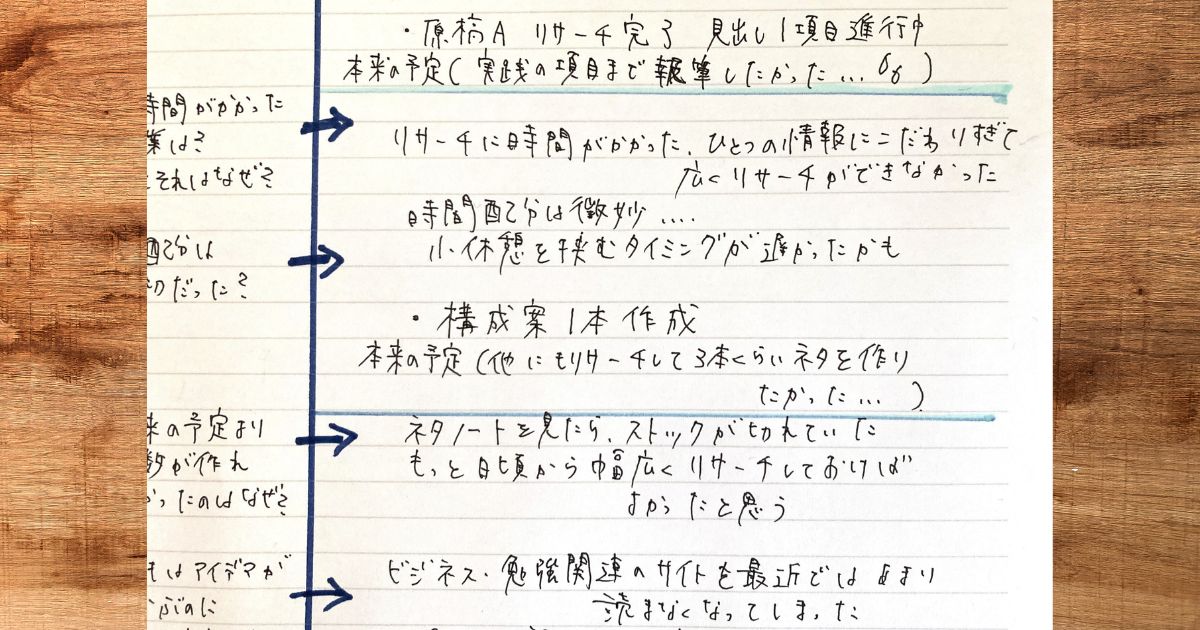 ・原稿A リサーチ完了 見出し1項目進行中
本来の予定(実践の項目まで執筆したかった… )
時間がかかった
業は?
それはなぜ?
リサーチに時間がかかった、ひとつの情報にこだわりすぎて
広くリサーチができなかった
時間配分は微妙….
小休憩を挟むタイミングが遅かったかも
配分は
切だった?
・構成案1本作成
本来の予定(他にもリサーチして3本くらいネタを作り
たかった… )
来の予定より
数が作れ
かったのはなぜ?
ネタノートを見たら、ストックが切れていた
もっと日頃から幅広くリサーチしておけば
よかったと思う
はアイデアが
かぶのに
ビジネス・勉強関連のサイトを最近ではあまり
読まなくなってしまった